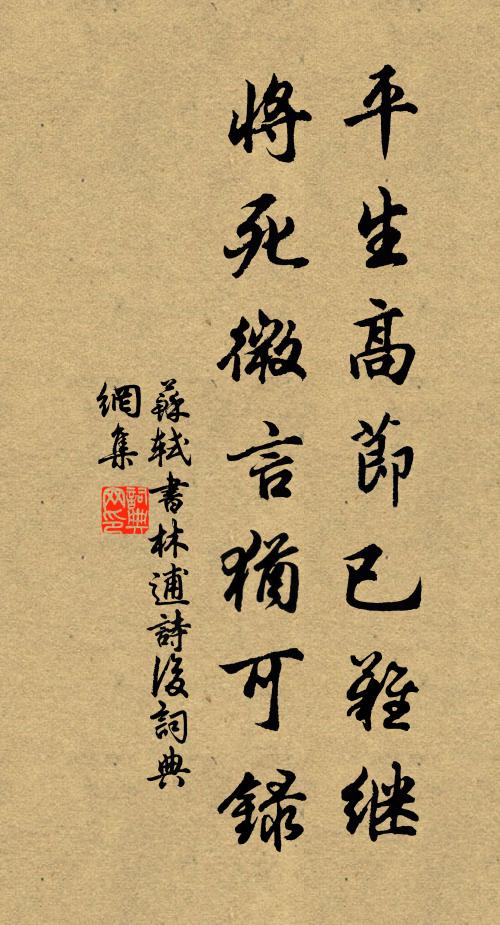 平生高節已難继
將死微言猶可録
蘇軾書林逋詩後詞典
網集
詞典網印